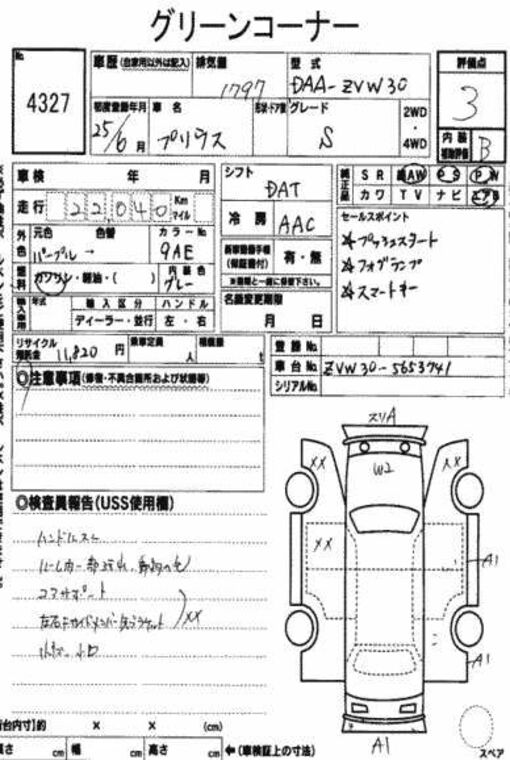 グリーンコーナー
No. 4327
車歴 (自家用以外は記入) 排気量 1797 型式 DAA-ZVW30
評価点 3
初度登録年月 25/6月 車名 プリウス 形状・ドア数 グレード S 2WD・4WD
内装補助評価 B
車検 年 月
走行 22,040 Km マイル
シフト DAT
冷房 AAC
純正品 SR AW PS PW
カワ TV ナビ エアB
外色 元色 パープル → 色替 カラーNo. 9AE
燃料 ガソリン・軽油・( ) 内装色 グレー
輸入車用 年式 輸入区分 ハンドル
ディーラー・並行 左・右
新車整備手帳(保証書付) 有・無
※書類と一緒に保管下さい。
名義変更期限
月 日
セールスポイント
☆プッシュスタート
☆フォグランプ
☆スマートキー
リサイクル預託金 11,820 円 乗車定員 人 積載量 t
登録No.
車台No. ZVW30-5653741
シリアルNo.
◎注意事項 (修復・不具合箇所および状態等)
◎検査員報告(USS使用欄)
ハンドルスレ
コアサポート
XX
スリA
W2
XX
XX
XX
A1
A1
A1
スペア
荷台内寸】約 × × (cm)
長さ cm 幅 cm 高さ cm ←(車検証上の寸法)